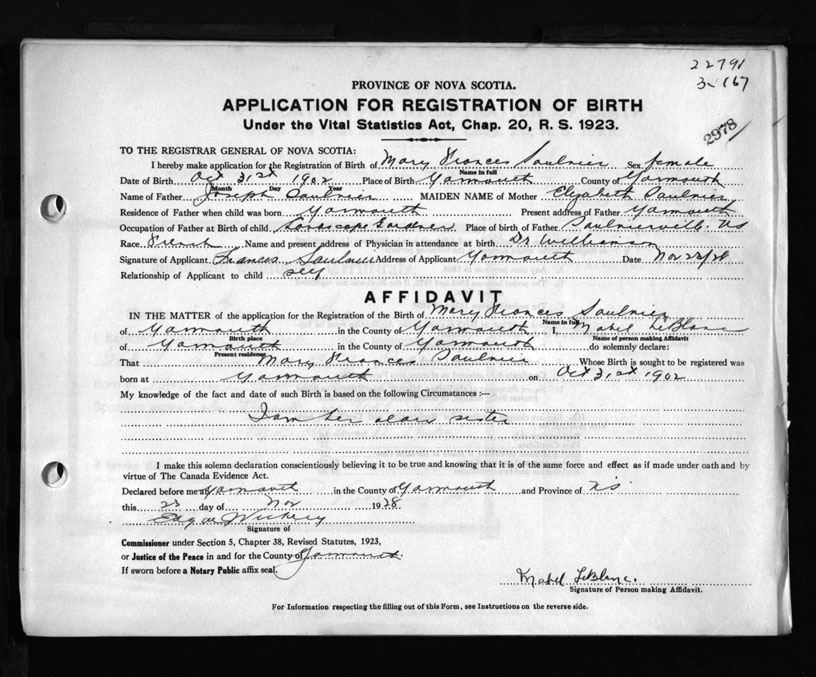 22791
3-167
2978/
PROVINCE OF NOVA SCOTIA.
APPLICATION FOR REGISTRATION OF BIRTH
Under the Vital Statistics Act, Chap. 20, R. S. 1923.
TO THE REGISTRAR GENERAL OF NOVA SCOTIA:
I hereby make application for the Registration of Birth of Mary Frances Saulnier Sex female
Name in full
Date of Birth Oct 31st 1902 Place of Birth Yarmouth County of Yarmouth
Month Day Year
Name of Father Joseph Saulnier MAIDEN NAME of Mother Elizabeth Saulnier
Residence of Father when child was born Yarmouth Present address of Father Yarmouth
Occupation of Father at Birth of child Gardner Place of birth of Father Saulnierville NS
Race French Name and present address of Physician in attendance at birth Dr. Williamson
Signature of Applicant Frances Saulnier Address of Applicant Yarmouth Date Nov 23/28
Relationship of Applicant to child self
AFFIDAVIT
IN THE MATTER of the application of the Registration of the Birth of Mary Frances Saulnier
Name in full
of Yarmouth in the County of Yarmouth I, Mabel LeBlanc
Birth place Name of person making Affidavit
of Yarmouth in the County of Yarmouth do solemnly declare:
Present residence
That Mary Frances Saulnier Whose Birth is sought to be registered was
born at Yarmouth on Oct 31st 1902
My knowledge of the fact and date of such Birth is based on the following Circumstances :—
I am her older sister
I make this solemn declaration conscientiously believing it to be true and knowing that it is of the same force and effect as if made under oath and by
virtue of The Canada Evidence Act.
Declared before me at Yarmouth in the County of Yarmouth and Province of NS
this 23 day of Nov 1928
Edgar Vickery
Signature of
Commissioner under Section 5, Chapter 38, Revised Statutes, 1923,
or Justice of the Peace in and for the County of Yarmouth.
If sworn before a Notary Public affix seal.
Mabel LeBlanc.
Signature of Person making Affidavit.
For Information respecting the filling out of this Form, see Instructions on the reverse side.